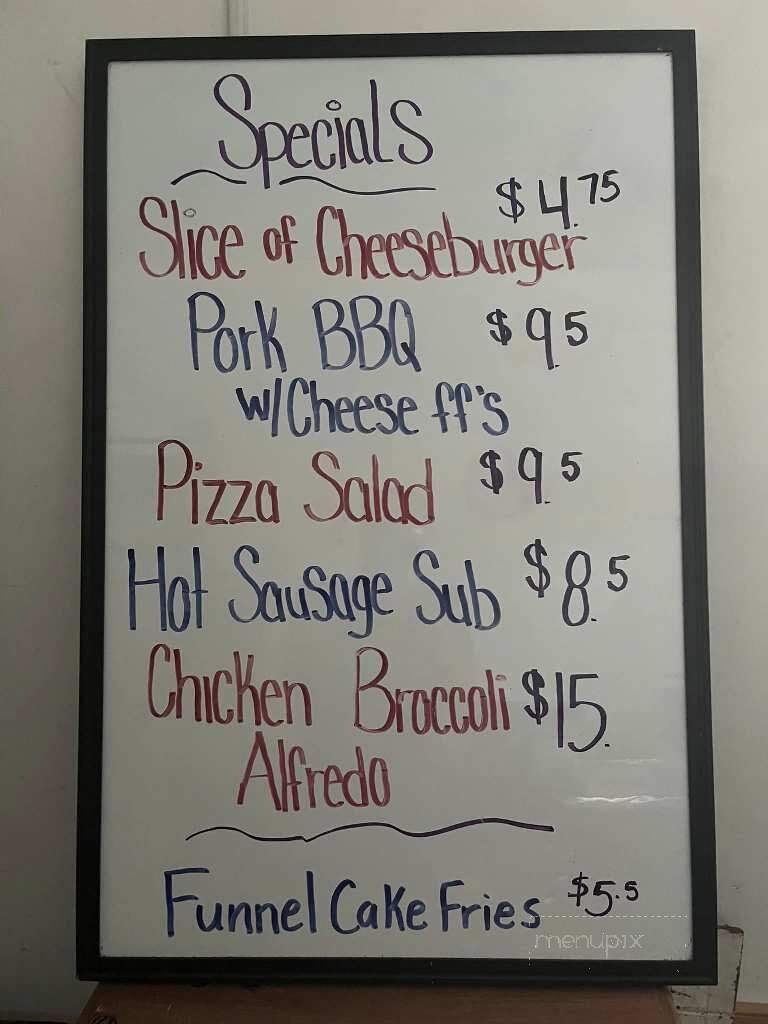 Specials
$4.75
Slice of Cheeseburger
Pork BBQ $9.5
w/Cheese ff's
Pizza Salad $9.5
Hot Sausage Sub $8.5
Chicken Broccoli $15.
Alfredo
Funnel Cake Fries $5.5
menupix